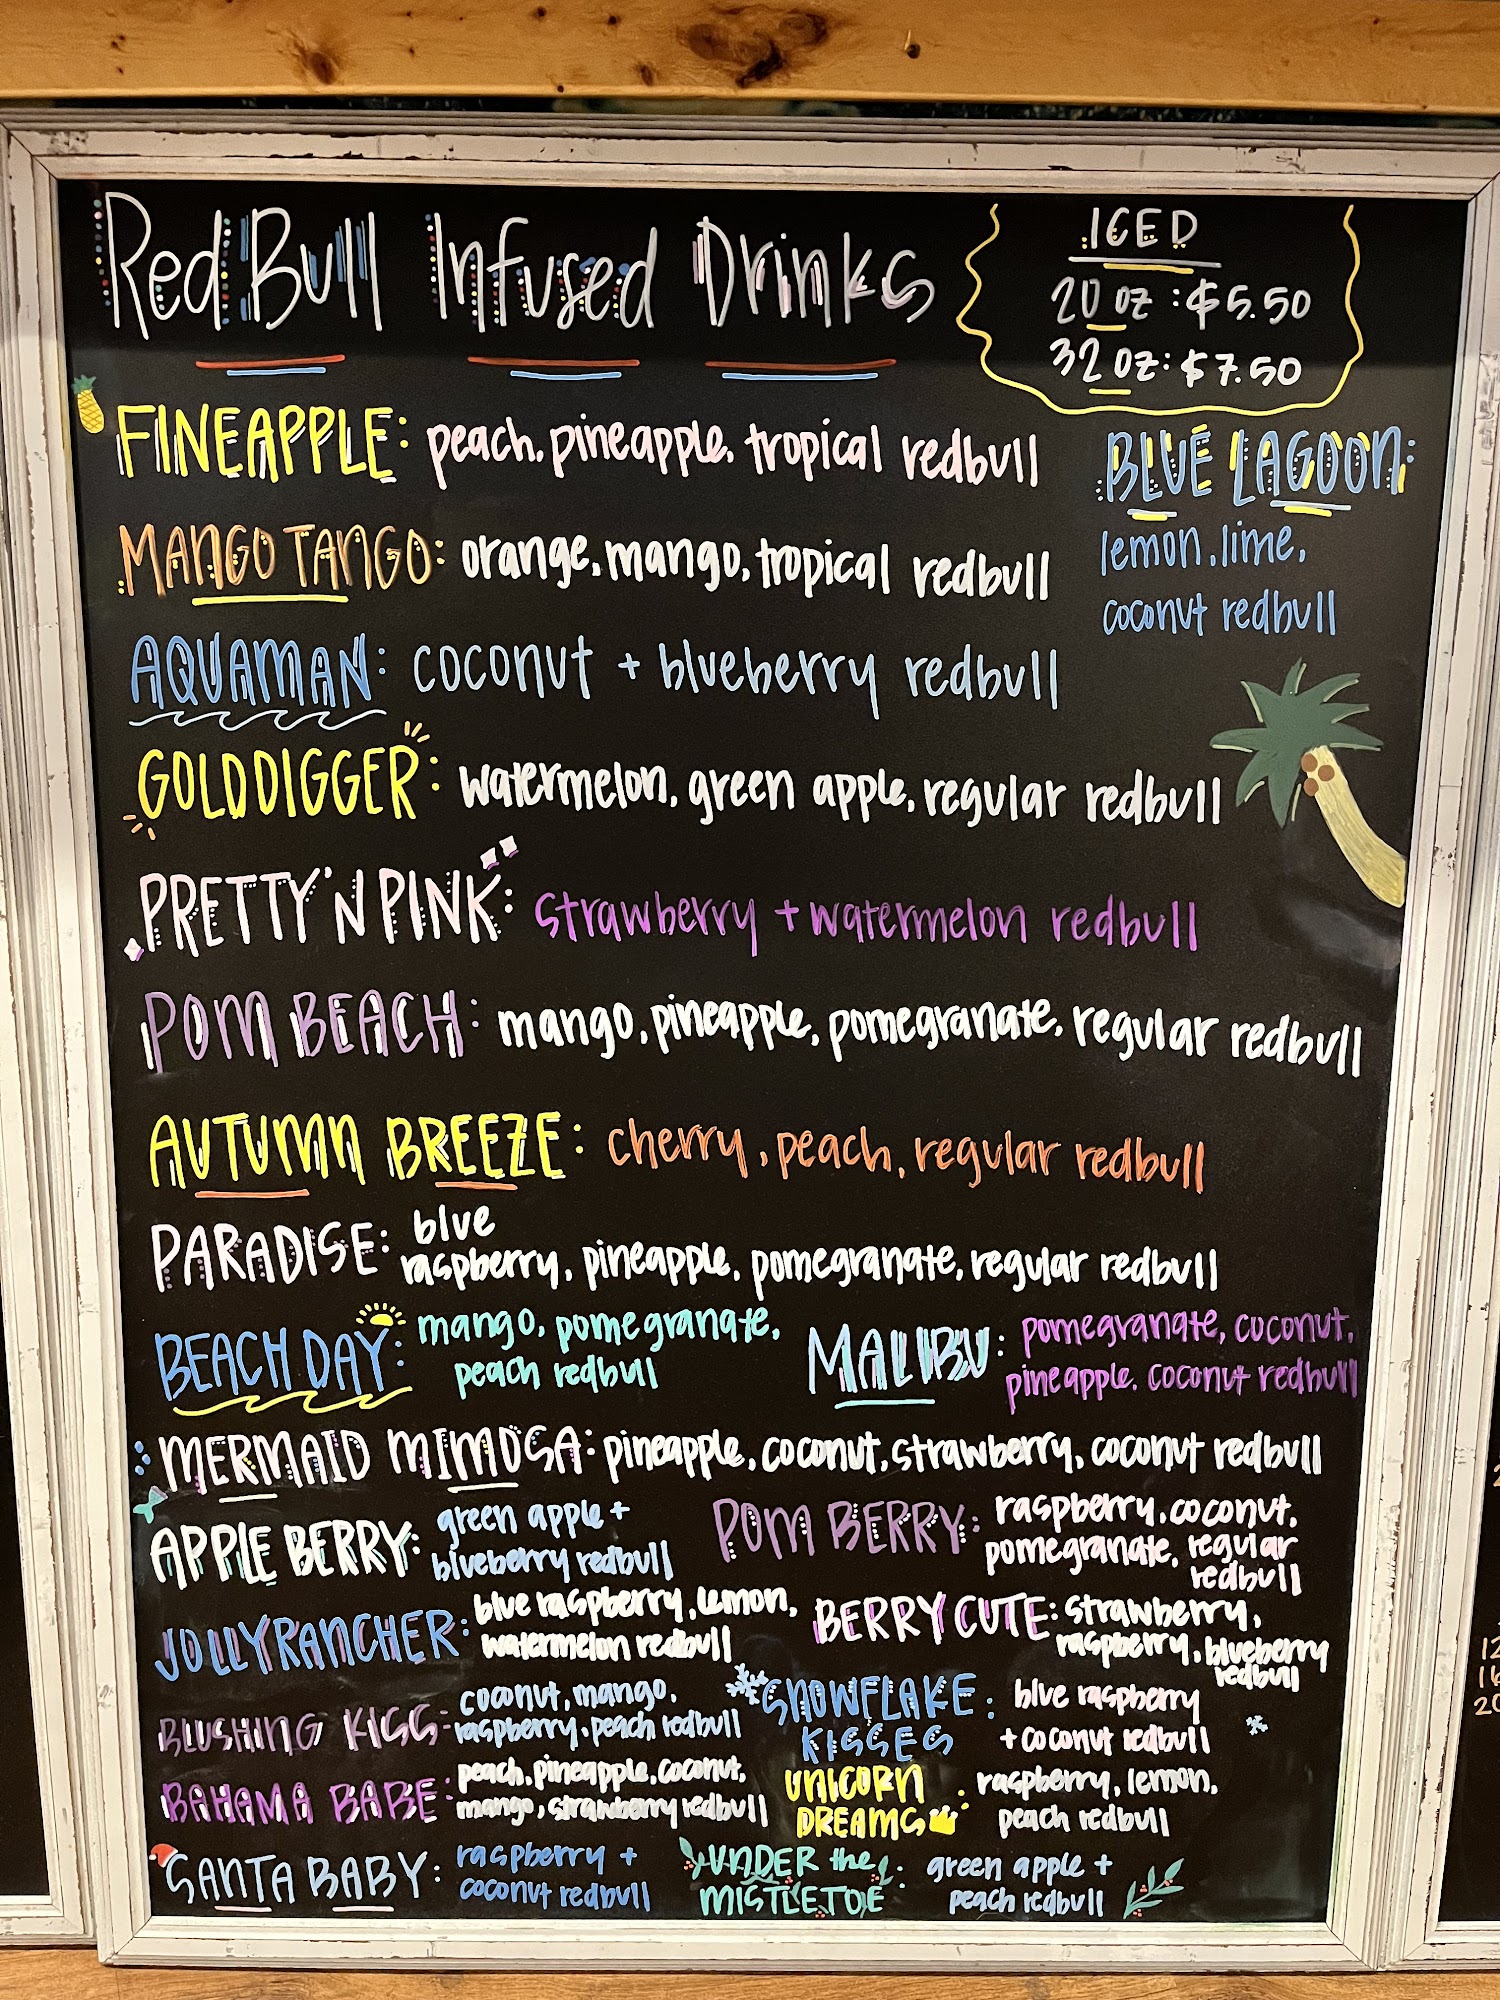 Red Bull Infused Drinks
ICED
20 oz : $5.50
32 oz: $7.50
FINEAPPLE: peach, pineapple, tropical redbull
BLUE LAGOON:
lemon, lime,
coconut redbull
MANGO TANGO: orange, mango, tropical redbull
AQUAMAN: coconut + blueberry redbull
GOLD DIGGER: watermelon, green apple, regular redbull
PRETTY 'N PINK: strawberry + watermelon redbull
POM BEACH: mango, pineapple, pomegranate, regular redbull
AUTUMN BREEZE: cherry, peach, regular redbull
PARADISE: blue
raspberry, pineapple, pomegranate, regular redbull
BEACH DAY: mango, pomegranate,
peach redbull
MALIBU: pomegranate, coconut,
pineapple, coconut redbull
MERMAID MIMOSA: pineapple, coconut, strawberry, coconut redbull
APPLE BERRY: green apple +
blueberry redbull
POM BERRY: raspberry, coconut,
pomegranate, regular
redbull
JOLLY RANCHER: blue raspberry, lemon,
watermelon redbull
BERRY CUTE: strawberry,
raspberry, blueberry
redbull
BLUSHING KISS: coconut, mango,
raspberry, peach redbull
SNOWFLAKE KISSES: blue raspberry
+ coconut redbull
BAHAMA BABE: peach, pineapple, coconut,
mango, strawberry redbull
UNICORN DREAMS: raspberry, lemon,
peach redbull
SANTA BABY: raspberry +
coconut redbull
UNDER the MISTLETOE: green apple +
peach redbull